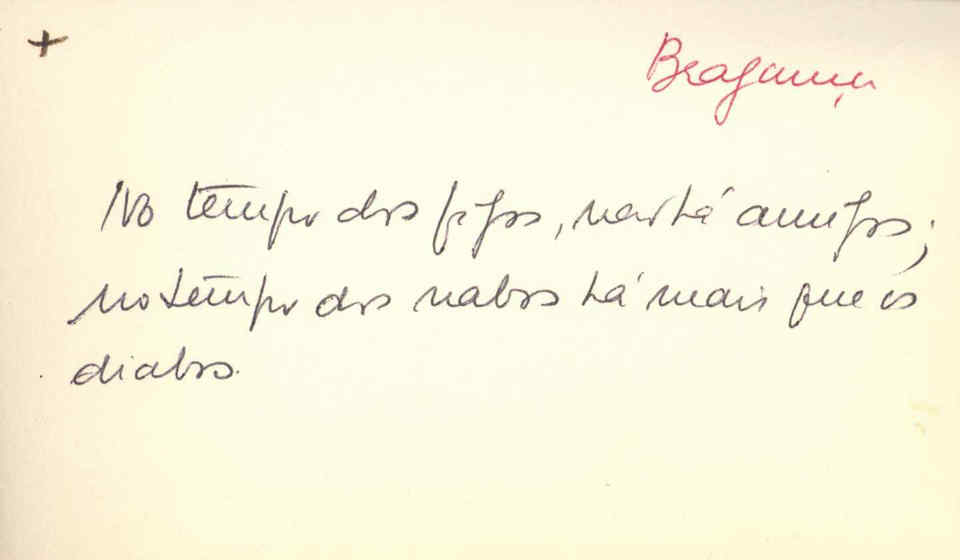 +
Bragança
No tempo dos figos, não há amigos;
no tempo dos nabos há mais que os
diabos.